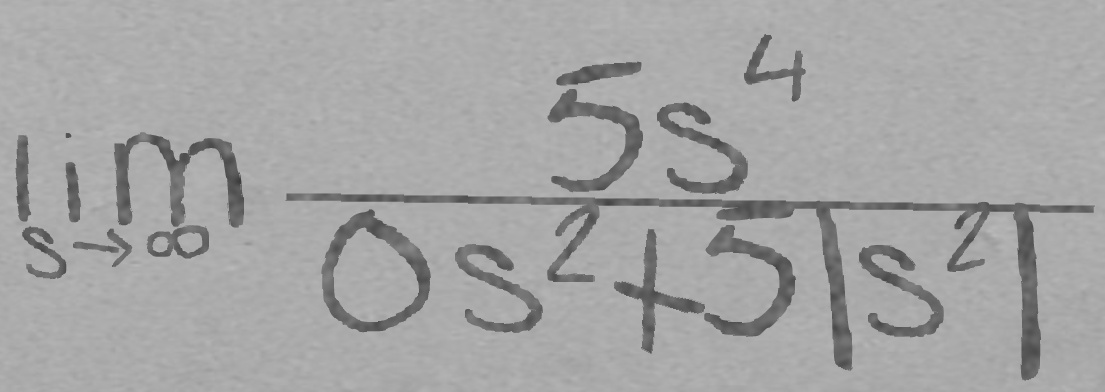 \lim_{s \to \infty} \frac{5s^4}{0s^2+5|s^2|}